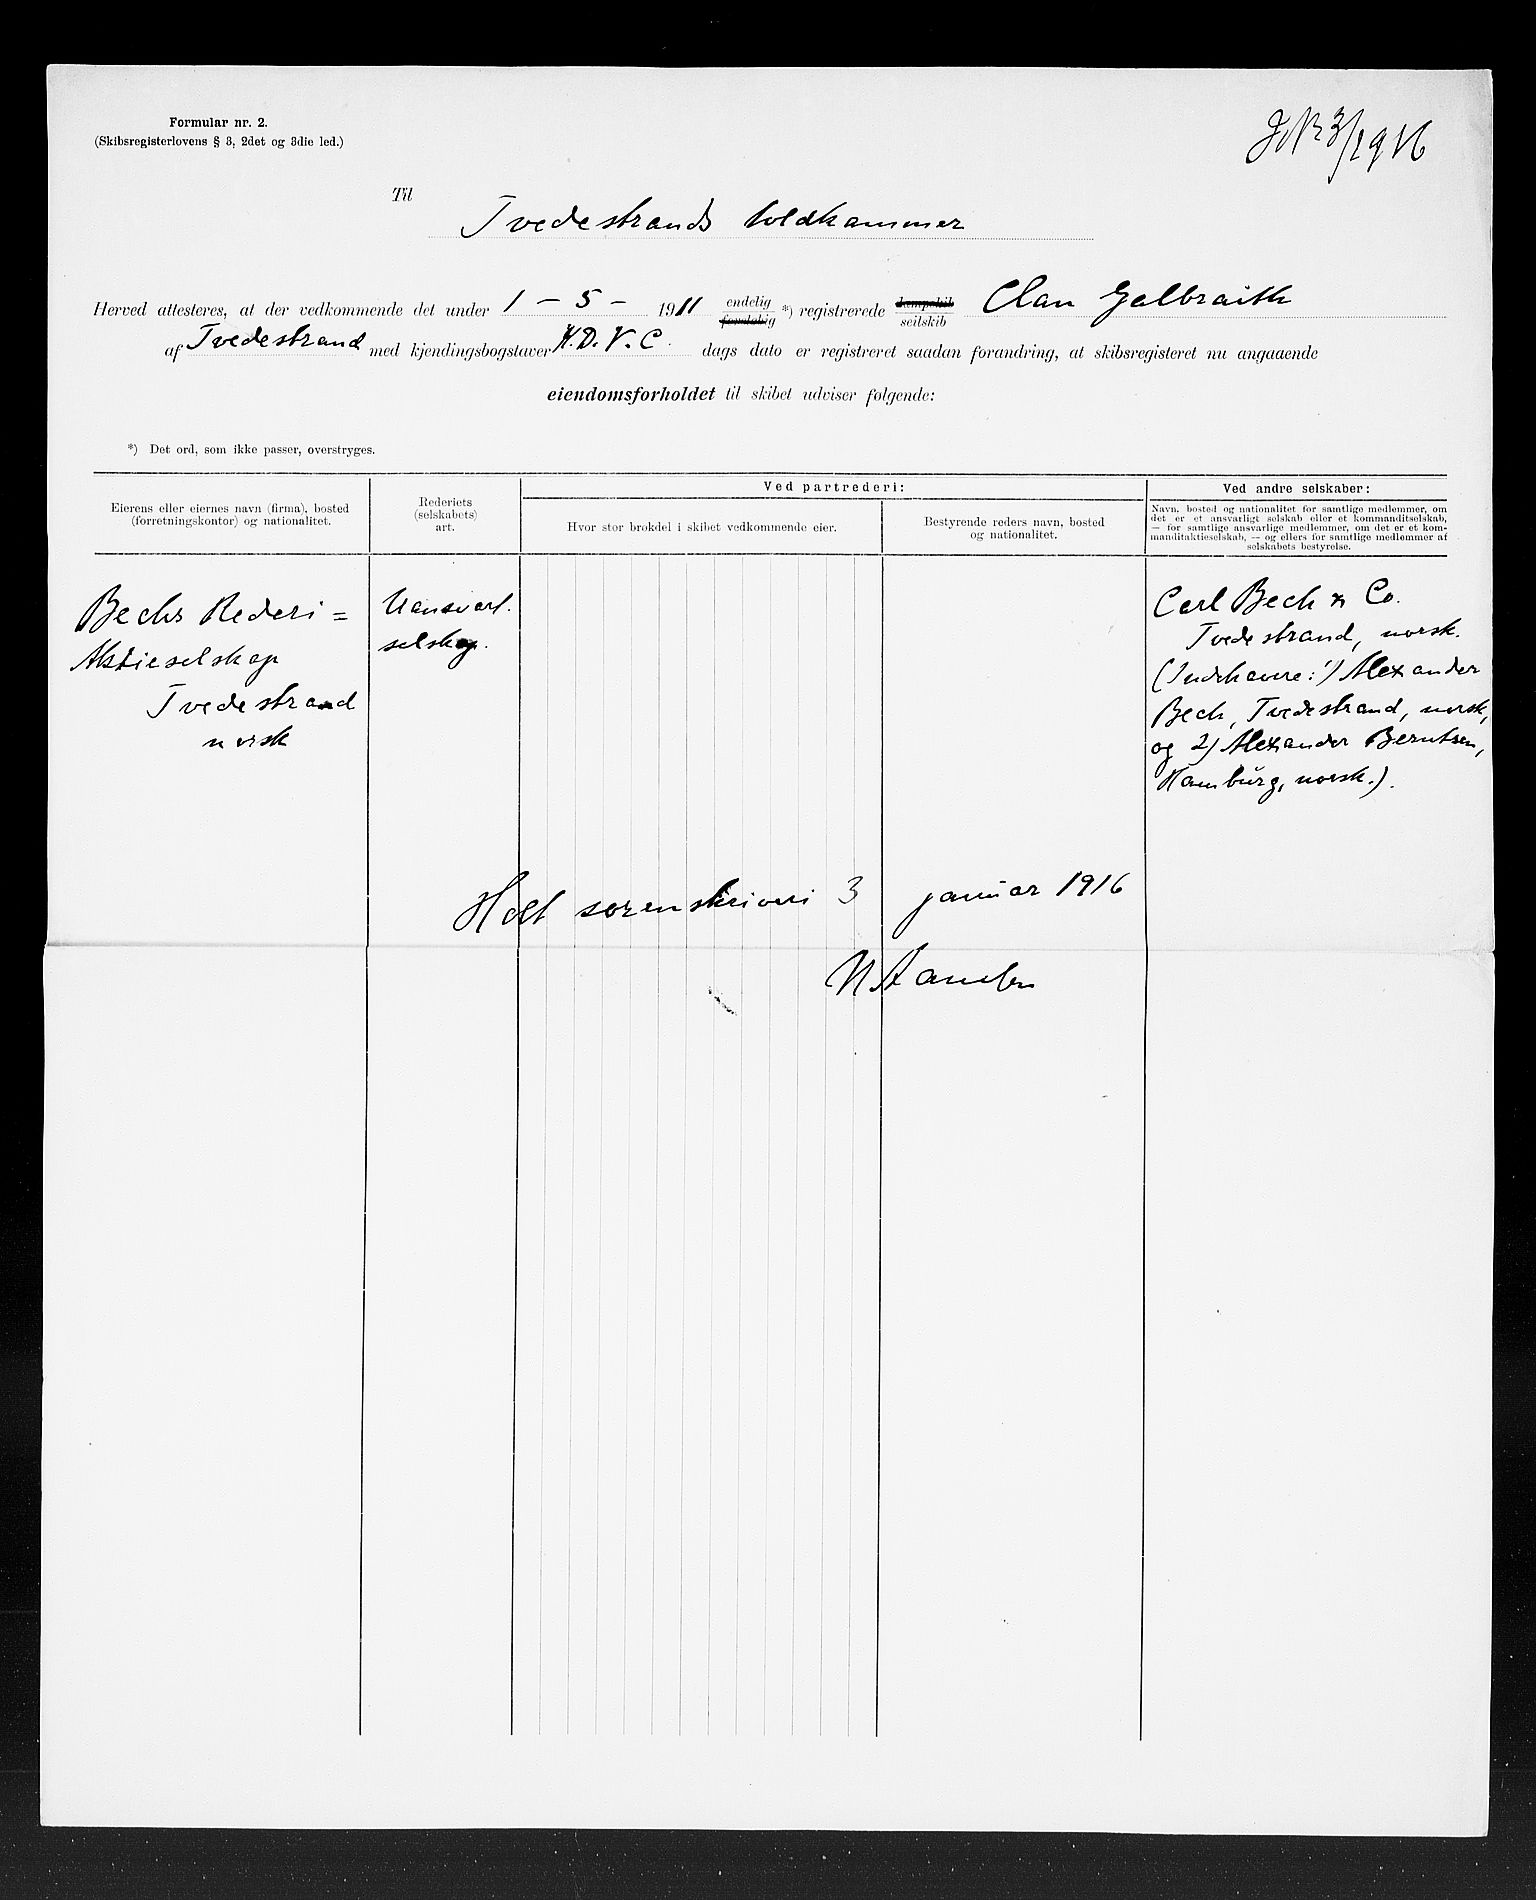 Formular nr. 2.
(Skibsregisterlovens § 3, 2det og 3die led.)
JNR 3/1916
Til
Tvedestrands toldkammer
Herved attesteres, at der vedkommende det under 1 – 5 – 1911 endelig foreløbig *) registrerede dampskib seilskib Clan Galbraith
af Tvedestrand med kjendingsbogstaver H.D.V.C. dags dato er registreret saadan forandring, at skibsregisteret nu angaaende
eiendomsforholdet til skibet udviser følgende:
*) Det ord, som ikke passer, overstryges.
Eierens eller eiernes navn (firma), bosted
(forretningskontor) og nationalitet.
Rederiets
(selskabets)
art.
Ved partrederi:
Hvor stor brøkdel i skibet vedkommende eier.
Bestyrende reders navn, bosted
og nationalitet.
Ved andre selskaber:
Navn, bosted og nationalitet for samtlige medlemmer, om
det er et ansvarligt selskab eller et kommanditselskab,
— for samtlige ansvarlige medlemmer, om det er et kom-
manditaktieselskab, — og ellers for samtlige medlemmer af
selskabets bestyrelse.
Bechs Rederi =
Aktieselskap
Tvedestrand
norsk
Uansvarl.
selskap.
Carl Bech & Co.
Tvedestrand, norsk.
(Indehavere: 1) Alexander
Bech, Tvedestrand, norsk,
og 2) Alexander Berntsen,
Hamburg, norsk.).
Holt sorenskriveri 3 januar 1916